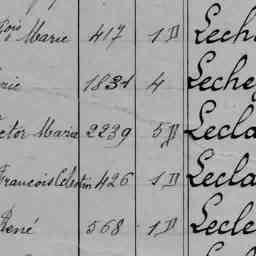 çois Marie 417 1 D Lech
rie 1831 4 Leche
ctor Marie 2239 5 D Lecla
François Célestin 426 1 D Lecla
René 568 1 D Lecle